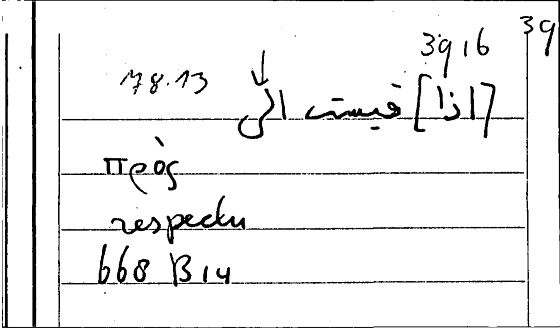 39
3916
78.13 ↓
[اذا] قيست الى
πρὸς
respectu
668 B 14